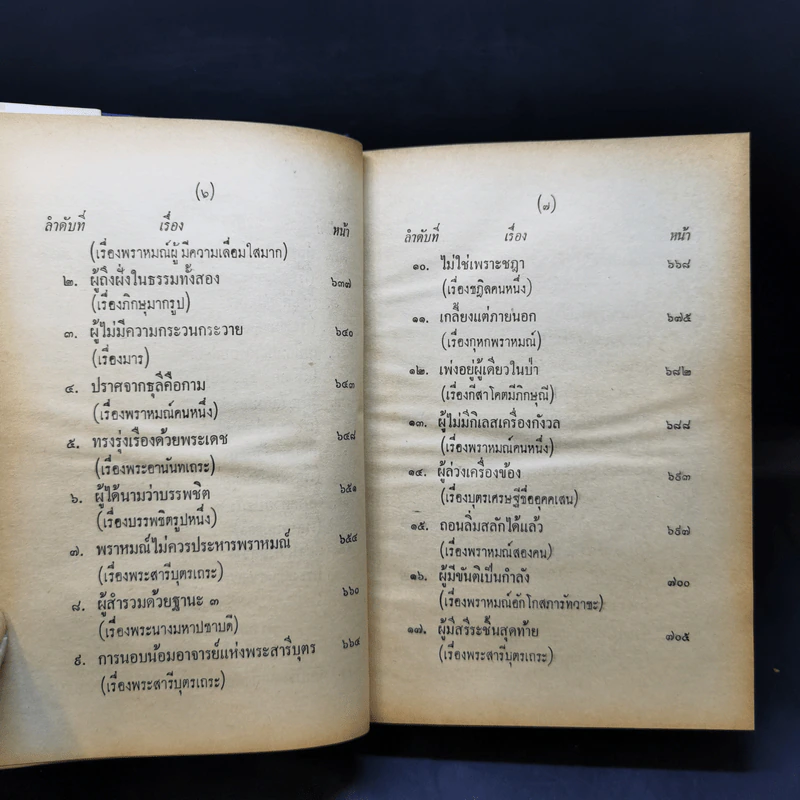 (๖)
ลำดับที่ เรื่อง หน้า
(เรื่องพราหมณ์ผู้มีความเลื่อมใสมาก)
๒. ผู้ถึงฝั่งในธรรมทั้งสอง ๖๓๗
(เรื่องภิกษุมากรูป)
๓. ผู้ไม่มีความกระวนกระวาย ๖๔๐
(เรื่องมาร)
๔. ปราศจากธุลีคือกาม ๖๔๓
(เรื่องพราหมณ์คนหนึ่ง)
๕. ทรงรุ่งเรืองด้วยพระเดช ๖๔๘
(เรื่องพระอานันทเถระ)
๖. ผู้ได้นามว่าบรรพชิต ๖๕๑
(เรื่องบรรพชิตรูปหนึ่ง)
๗. พราหมณ์ไม่ควรประหารพราหมณ์ ๖๕๔
(เรื่องพระสารีบุตรเถระ)
๘. ผู้สำรวมด้วยฐานะ ๓ ๖๖๐
(เรื่องพระนางมหาปชาบดี)
๙. การนอบน้อมอาจารย์แห่งพระสารีบุตร ๖๖๔
(เรื่องพระสารีบุตรเถระ)
(๗)
ลำดับที่ เรื่อง หน้า
๑๐. ไม่ใช่เพราะชฎา ๖๖๘
(เรื่องชฎิลคนหนึ่ง)
๑๑. เกลี้ยงแต่ภายนอก ๖๗๕
(เรื่องกุหกพราหมณ์)
๑๒. เพ่งอยู่ผู้เดียวในป่า ๖๘๒
(เรื่องกีสาโคตมีภิกษุณี)
๑๓. ผู้ไม่มีกิเลสเครื่องกังวล ๖๘๘
(เรื่องพราหมณ์คนหนึ่ง)
๑๔. ผู้ล่วงเครื่องข้อง ๖๙๓
(เรื่องบุตรเศรษฐีชื่ออุคคเสน)
๑๕. ถอนลิ่มสลักได้แล้ว ๖๙๗
(เรื่องพราหมณ์สองคน)
๑๖. ผู้มีขันติเป็นกำลัง ๗๐๐
(เรื่องพราหมณ์อักโกสภารัทวาชะ)
๑๗. ผู้มีสรีระชั้นสุดท้าย ๗๐๕
(เรื่องพระสารีบุตรเถระ)